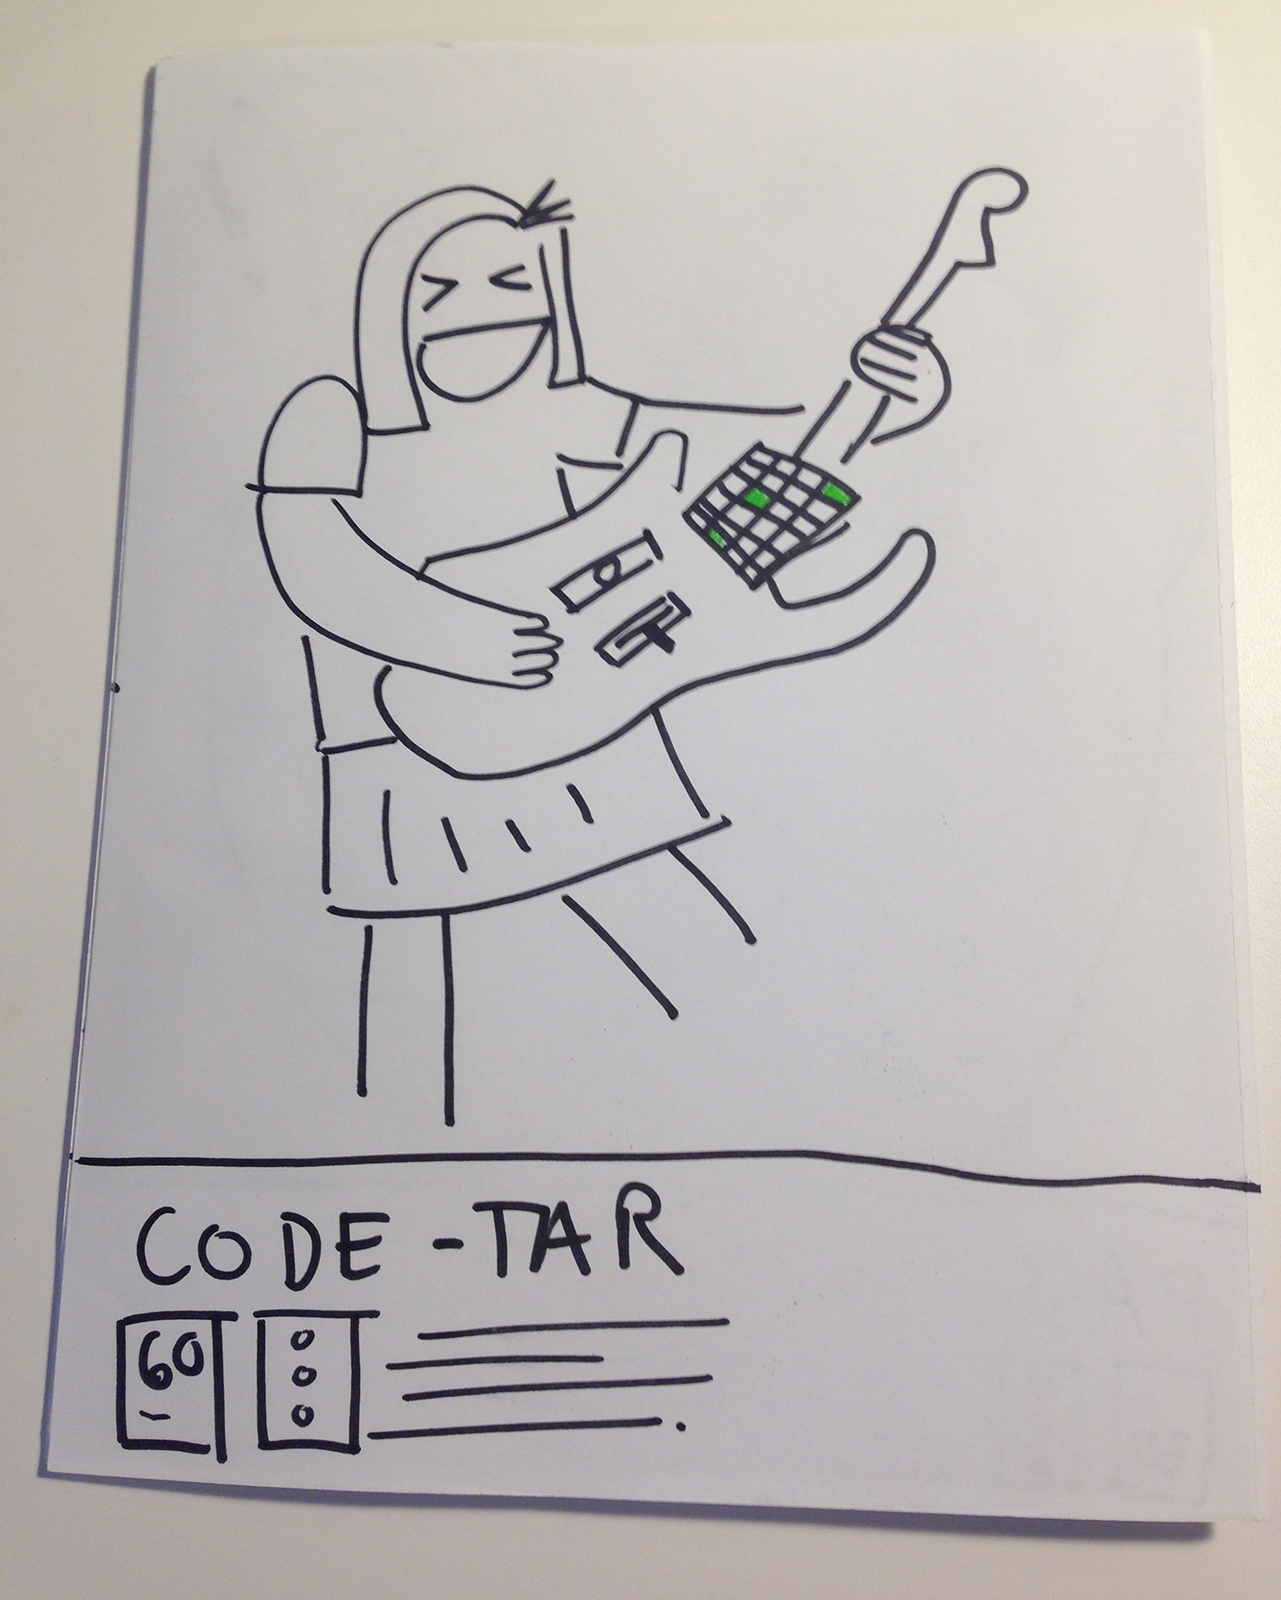 CODE-TAR
60